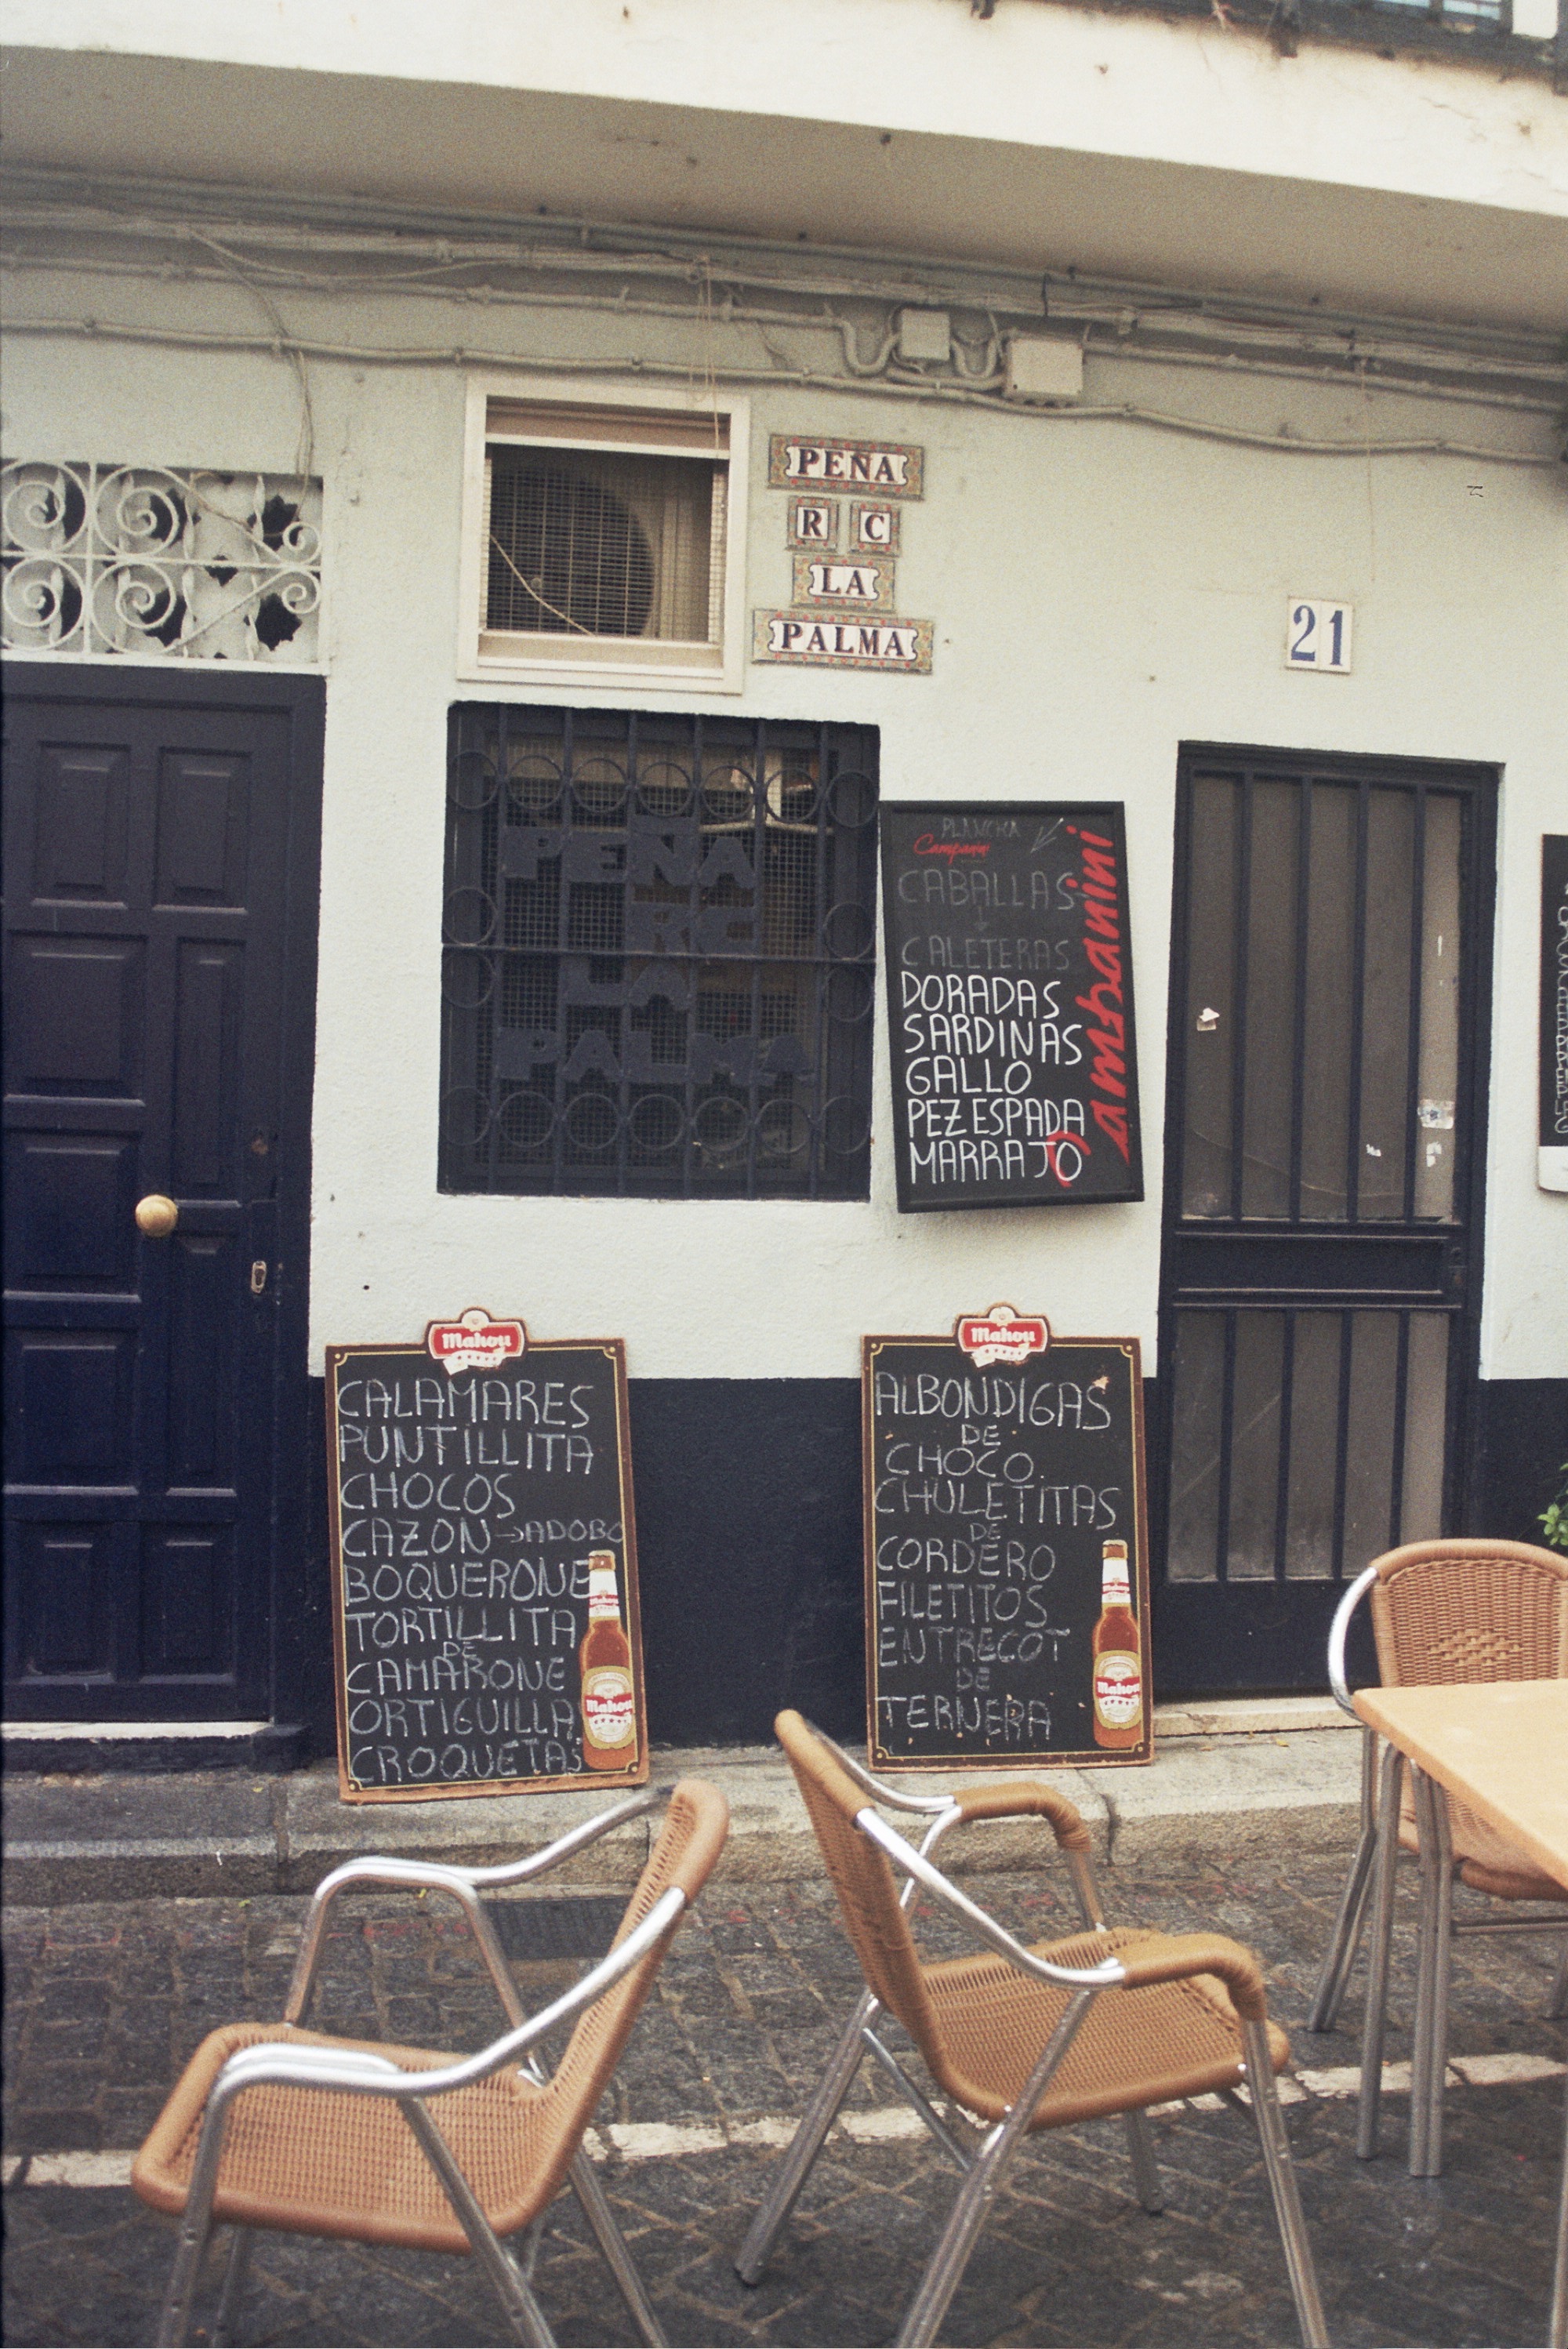 PEÑA
R C
LA
PALMA
21
PEÑA
RC
LA
PALMA
PLANCHA
Campanini
CABALLAS
CALETERAS
DORADAS
SARDINAS
GALLO
PEZ ESPADA
MARRAJO
Campanini
Mahou
CALAMARES
PUNTILLITA
CHOCOS
CAZON → ADOBO
BOQUERONE
TORTILLITA
DE
CAMARONE
ORTIGUILLA
CROQUETAS
Mahou
Mahou
ALBONDIGAS
DE
CHOCO
CHULETITAS
DE
CORDERO
FILETITOS
ENTRECOT
DE
TERNERA
Mahou